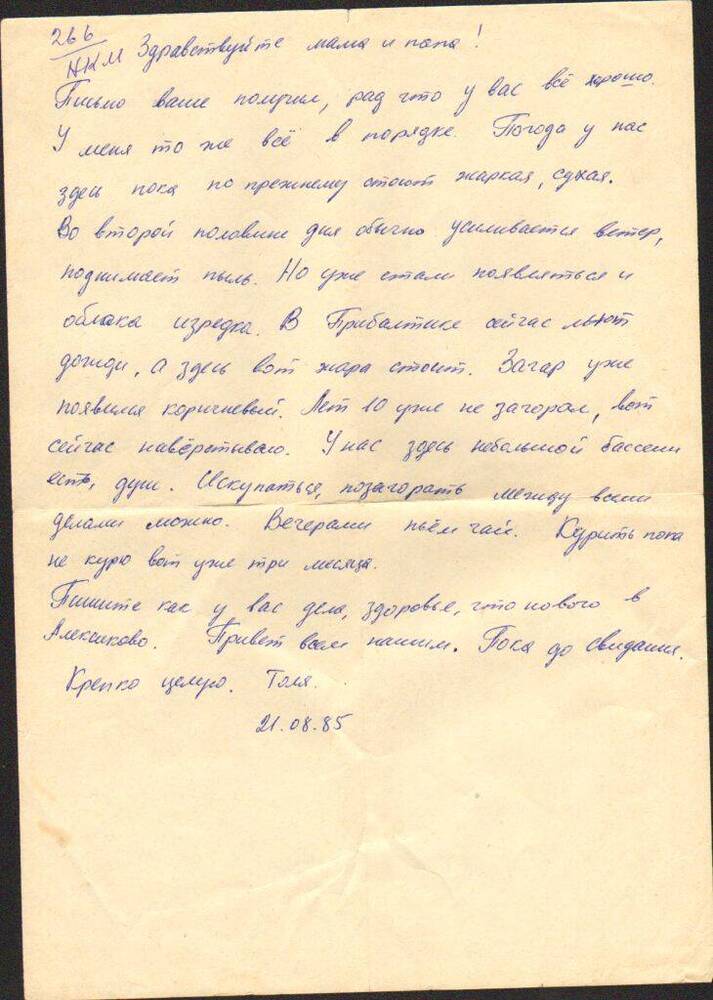 266
НКМ Здравствуйте мама и папа!
Письмо ваше получил, рад что у вас всё хорошо.
У меня то же всё в порядке. Погода у нас
здесь пока по прежнему стоит жаркая, сухая.
Во второй половине дня обычно усиливается ветер,
поднимает пыль. Но уже стали появляться и
облака изредка. В Прибалтике сейчас льют
дожди, а здесь вот жара стоит. Загар уже
появился коричневый. Лет 10 уже не загорал, вот
сейчас навёрстываю. У нас здесь небольшой бассейн
есть, душ. Искупаться, позагорать между всеми
делами можно. Вечерами пьём чай. Курить пока
не курю вот уже три месяца.
Пишите как у вас дела, здоровье, что нового в
Алексиково. Привет всем нашим. Пока до свидания.
Крепко целую. Толя.
21.08.85